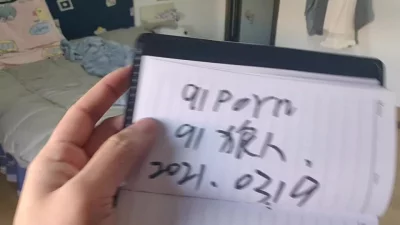 91Porn
91 人.
2021.03.19